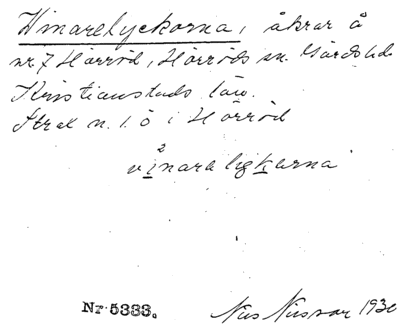 Winarelyckorna, åkrar å
nr 7 Hörröd, Hörröds sn. Gärds hd.
Kristianstads län.
Strax n. l. ö i Hörröd
vinara ligkarna
2
Nr 5333.
1930